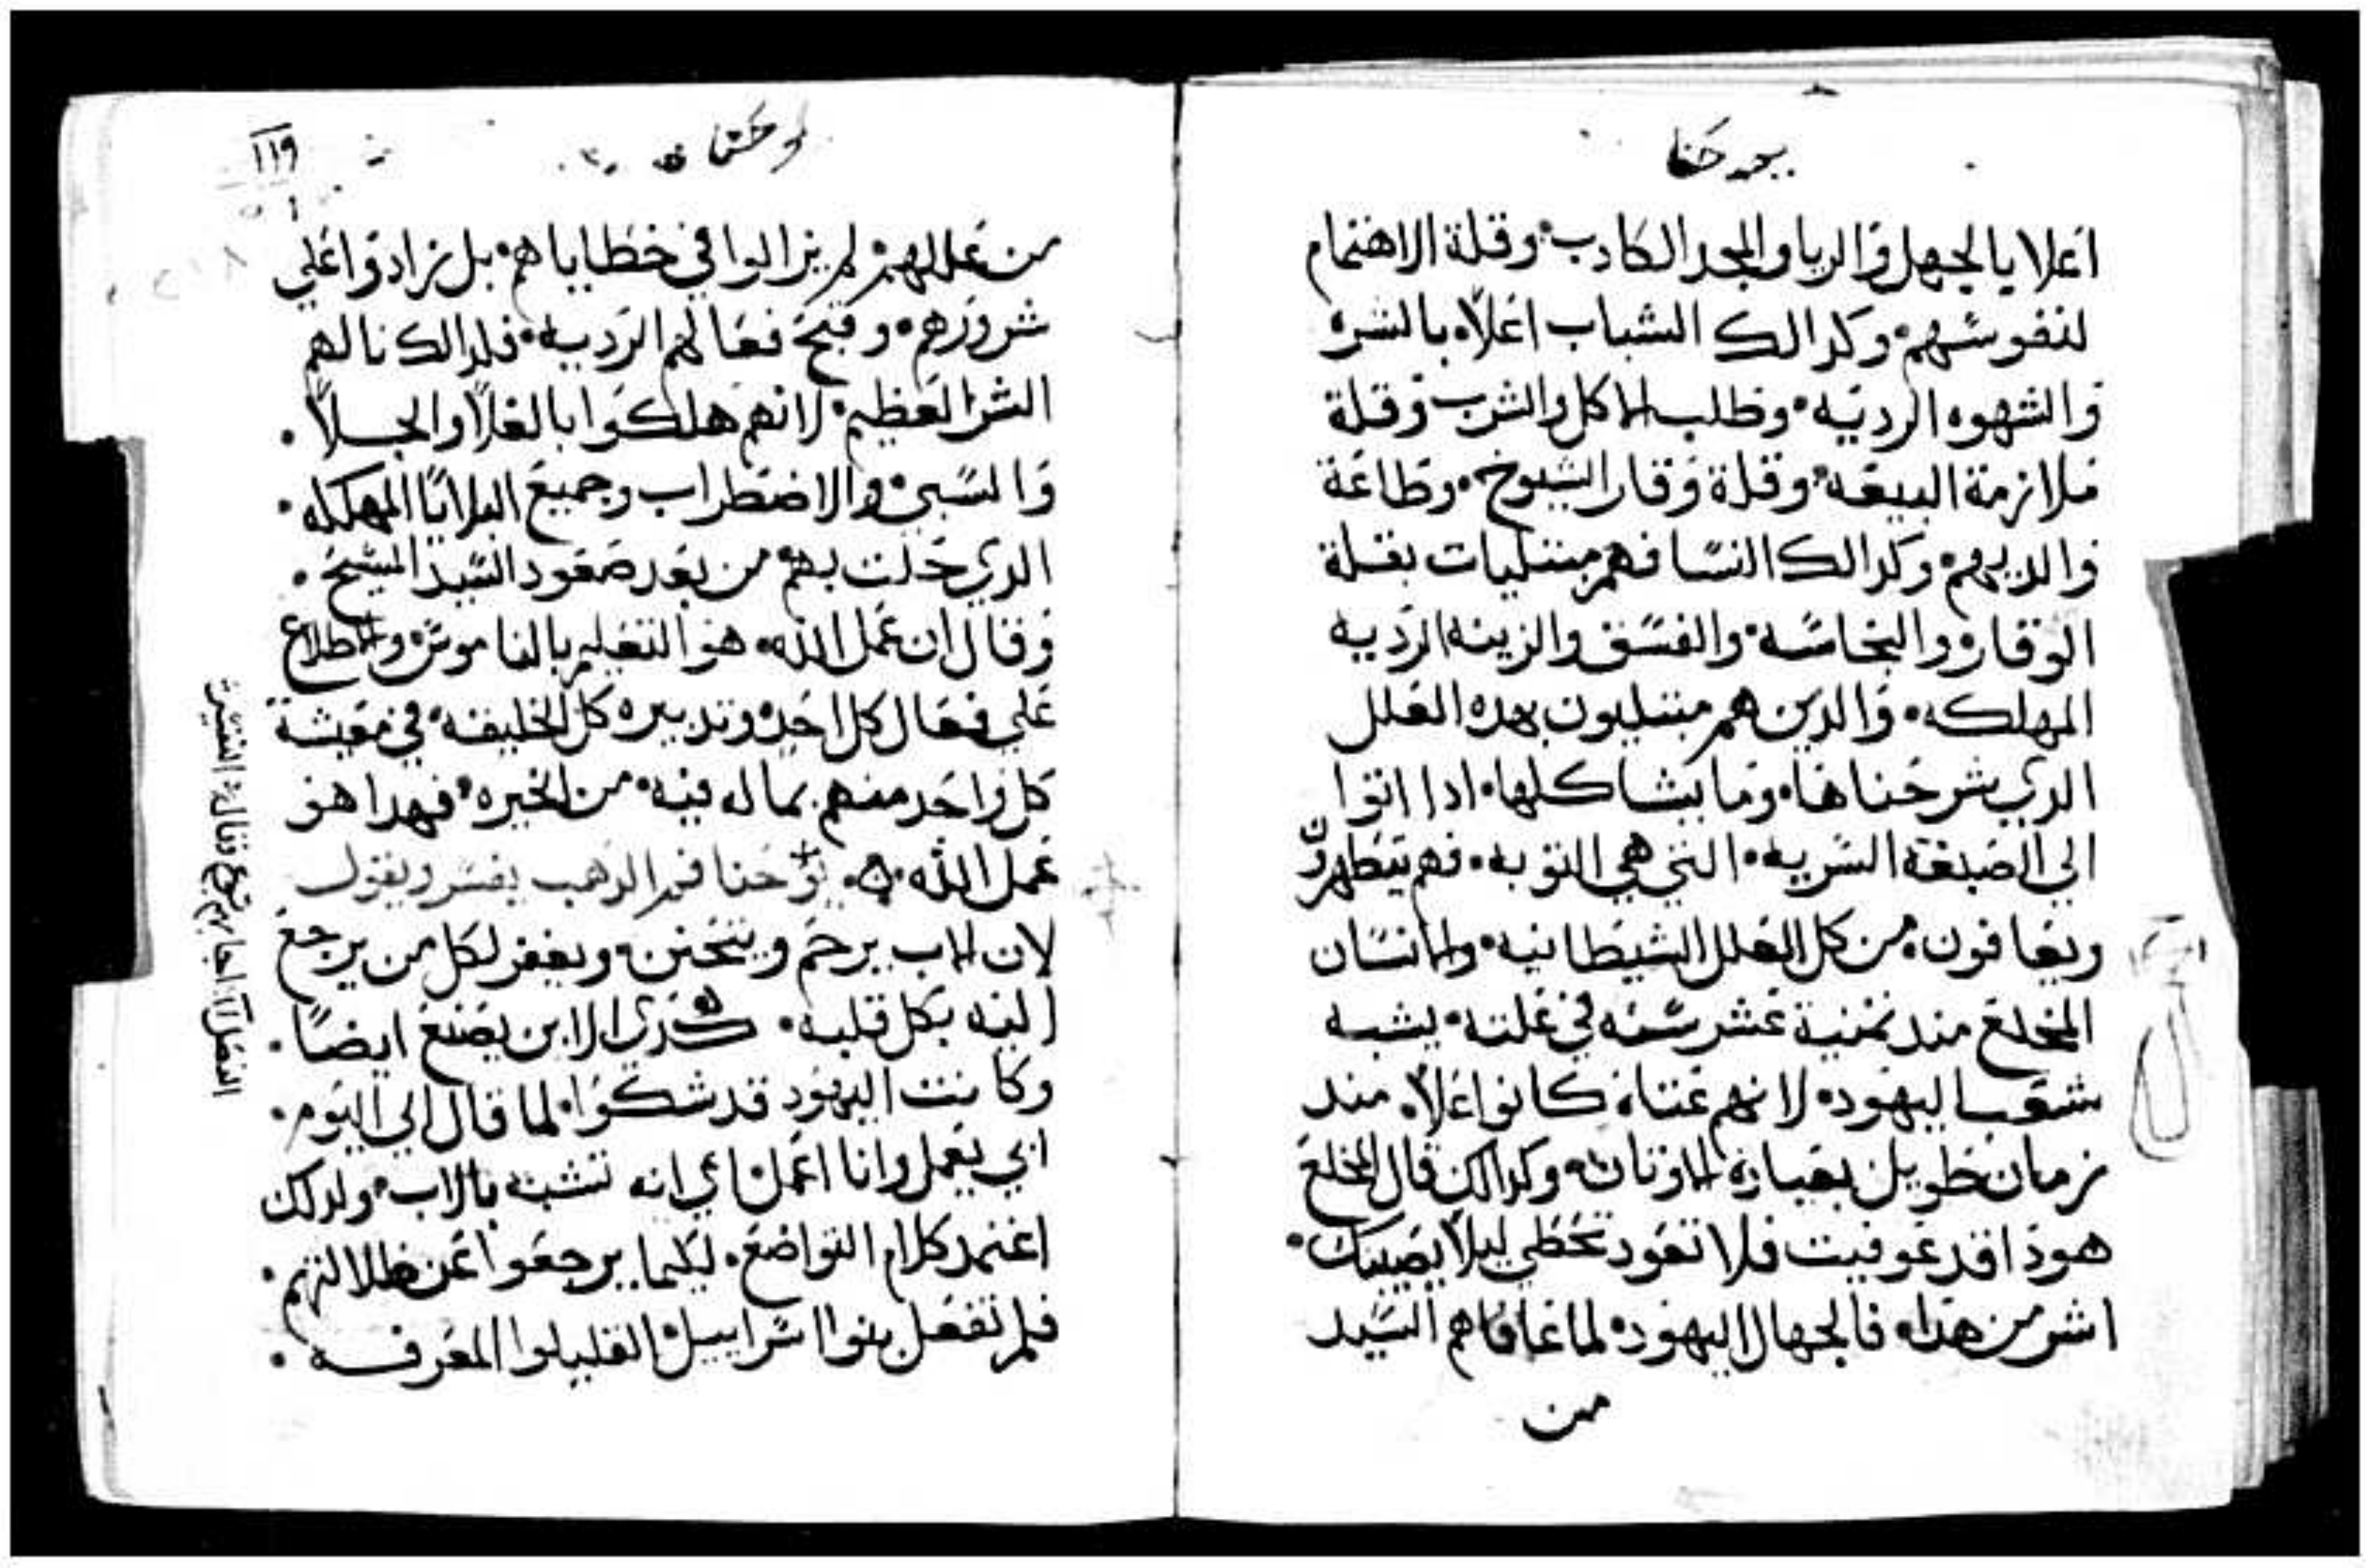 يوحنا
اعلا يا لجهل والريا والمجد الكادب وقلة الاهتمام
لنفوسهم وكدالك الشباب اعلاه بالشره
والشهوه الرديه وطلب الاكل والشرب وقلة
ملازمة البيعه وقلة وقار الشيوخ وطاعة
والديهم وكدالك النسا فهم مبتليات بقلة
الوقار والنجاسه والفسق والزينه الرديه
المهلكه والدين هم مبتليون بهده العلل
الدي شرحناها وما يشاكلها ادا اتوا
الي الصبغة السريه التي هي التوبه فهم يتطهرون
ويعافون من كل العلل الشيطانيه والانسان
المخلع مند تمنية عشر سنه في علته يشبه
شعب اليهود لانهم عتاه كانوا اعلاه مند
زمان طويل بعبادة الاوتان وكدالك قال للمخلع
هودا قد عوفيت فلا تعود تخطي ليلا يصيبك
اشر من هدا فالجهال اليهود لما عافاهم السيد
من
١١٩
من عللهم لم يزالوا في خطاياهم بل زادوا علي
شرورهم وقبح فعالهم الرديه فلدالك نالهم
الشر العظيم لانهم هلكوا بالغلا والجلا
والسبي والاضطراب وجميع البلايا المهلكه
الدي حلت بهم من بعد صعود السيد المسيح
وقال ان عمل الله هو التعليم بالناموس والاطلاع
علي فعال كل احد وتدبيره كل الخليقه في معيشة
كل واحد منهم بما له فيه من الخيره فهدا هو
عمل الله يوحنا فم الدهب يفسر ويقول
لان الاب يرحم ويتحنن ويغفر لكل من يرجع
اليه بكل قلبه كدي الابن يصنع ايضا
وكانت اليهود قد شكوا لما قال الي اليوم
ابي يعمل وانا اعمل اي انه تشبه بالاب ولدلك
اعتمد كلام التواضع ليكيما يرجعوا عن ظلالتهم
فلم تفعل بنوا اسراييل القليلوا المعرفه